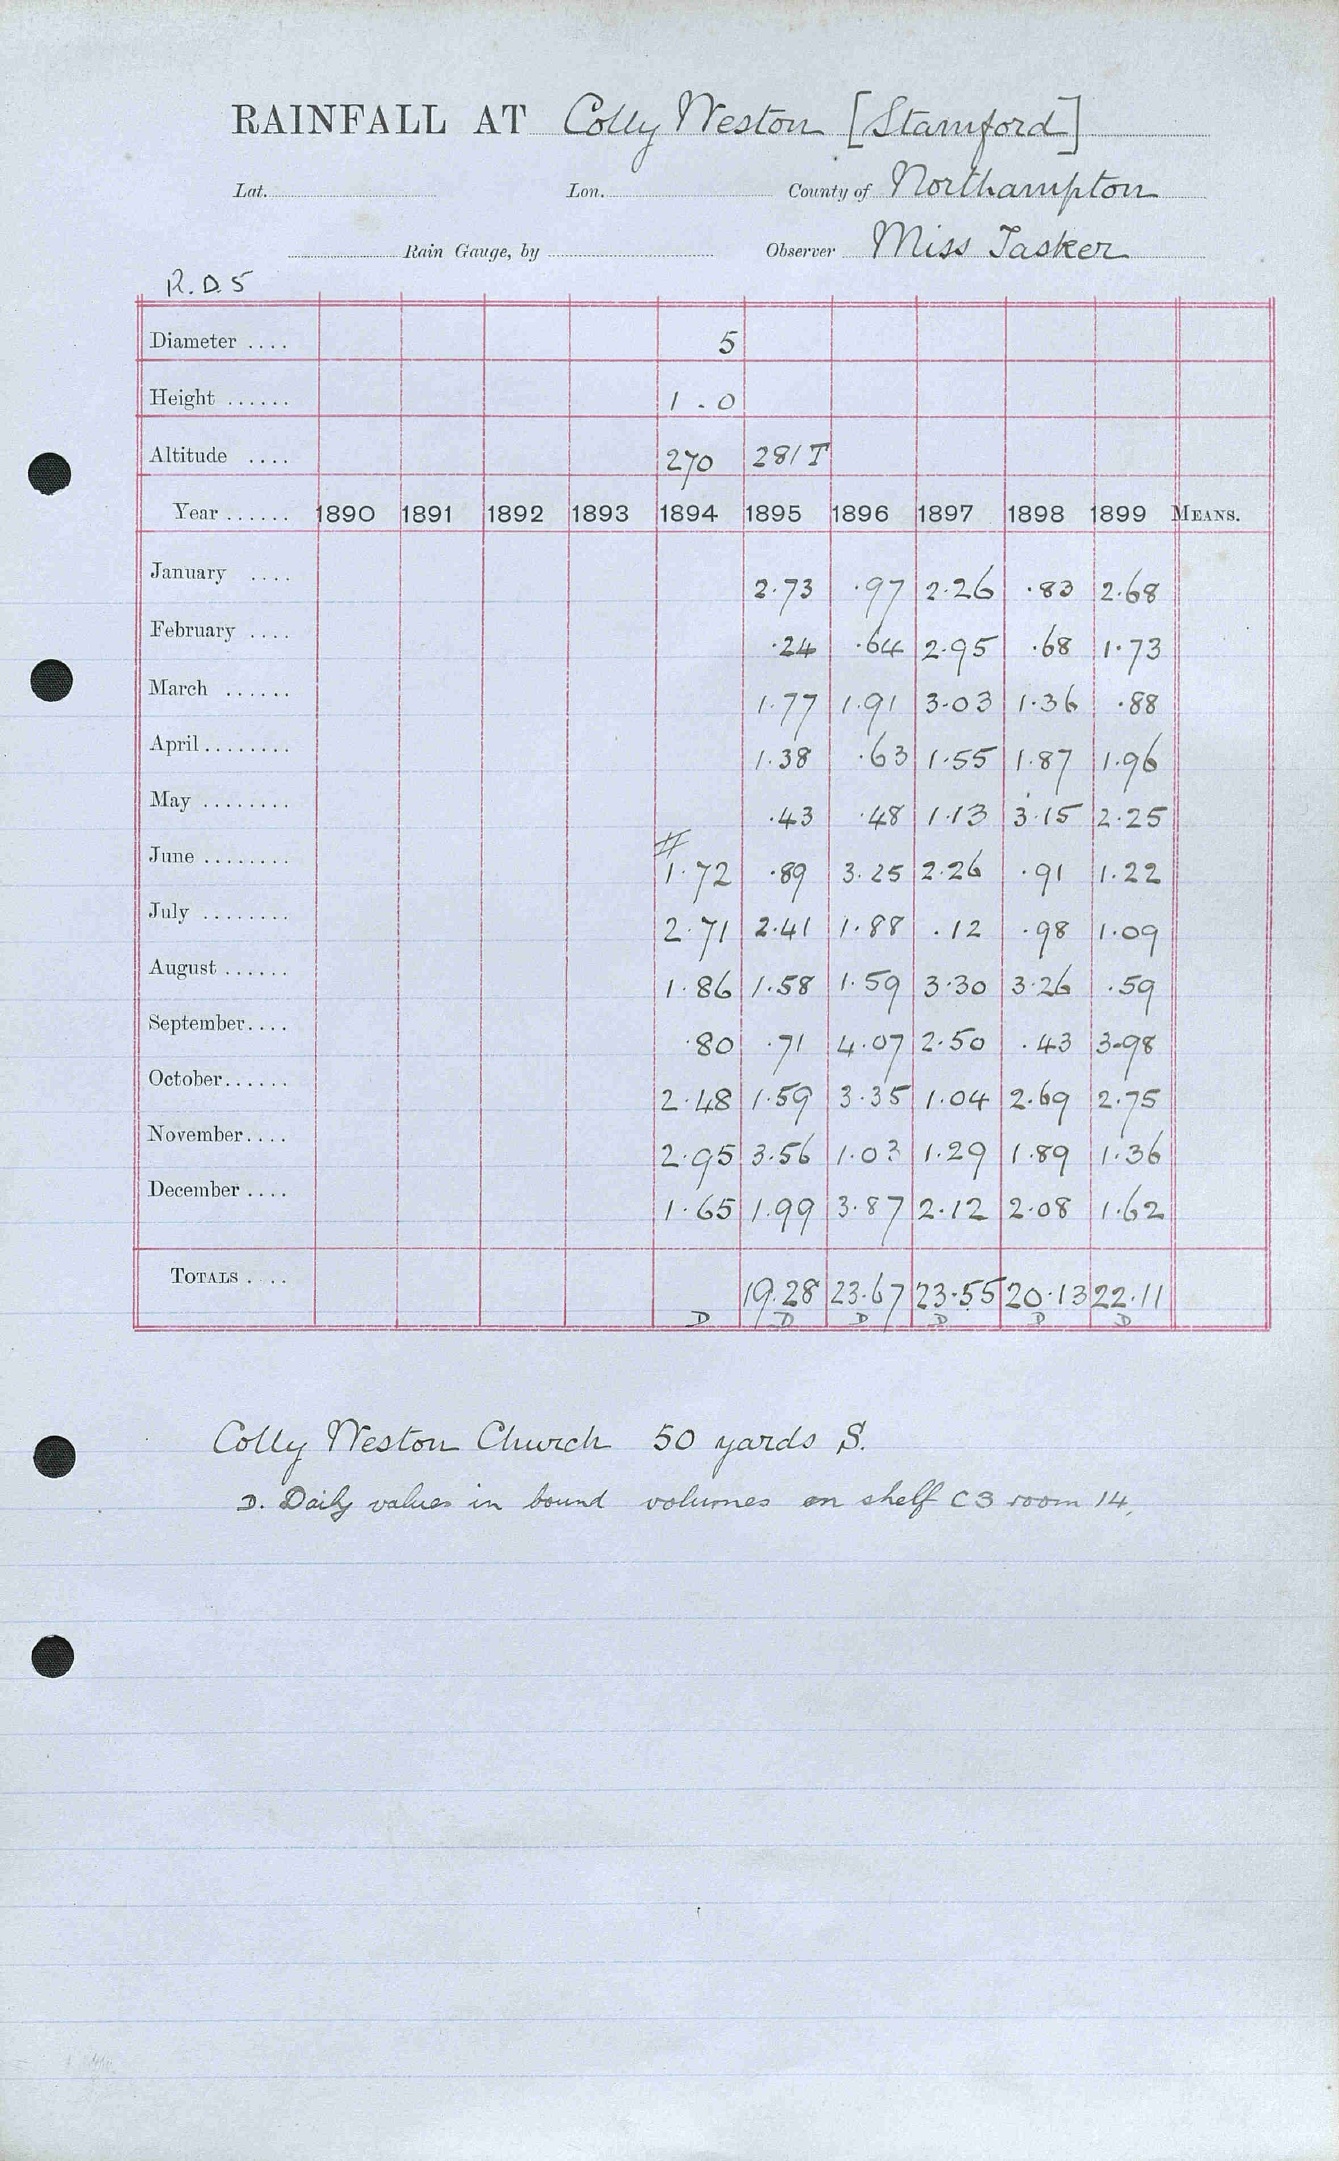 RAINFALL AT Colly Weston [Stamford]
Lat. Lon. County of Northampton
Rain Gauge, by Observer Miss Tasker
R.D.5
Diameter .... 5
Height ...... 1.0
Altitude .... 270 281T
Year ...... 1890 1891 1892 1893 1894 1895 1896 1897 1898 1899 MEANS.
January .... 2.73 .97 2.26 .83 2.68
February .... .24 .64 2.95 .68 1.73
March ...... 1.77 1.91 3.03 1.36 .88
April ........ 1.38 .63 1.55 1.87 1.96
May ........ .43 .48 1.13 3.15 2.25
June ........ # 1.72 .89 3.25 2.26 .91 1.22
July ........ 2.71 2.41 1.88 .12 .98 1.09
August ...... 1.86 1.58 1.59 3.30 3.26 .59
September.... .80 .71 4.07 2.50 .43 3.98
October...... 2.48 1.59 3.35 1.04 2.69 2.75
November.... 2.95 3.56 1.03 1.29 1.89 1.36
December .... 1.65 1.99 3.87 2.12 2.08 1.62
TOTALS .... 19.28 23.67 23.55 20.13 22.11
D D D D D D
Colly Weston Church 50 yards S.
D. Daily values in bound volumes on shelf C3 room 14.